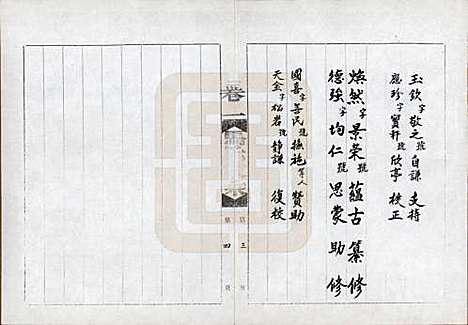 玉欽字敬之號自謙 支持
應珍字寶軒號欣亭 校正
煥然字景榮號蘊古 纂修
德強字均仁號思蒙 助修
國喜字善民號 等人 贊助
天金字松岩號靜謙 復校
卷一
三
四